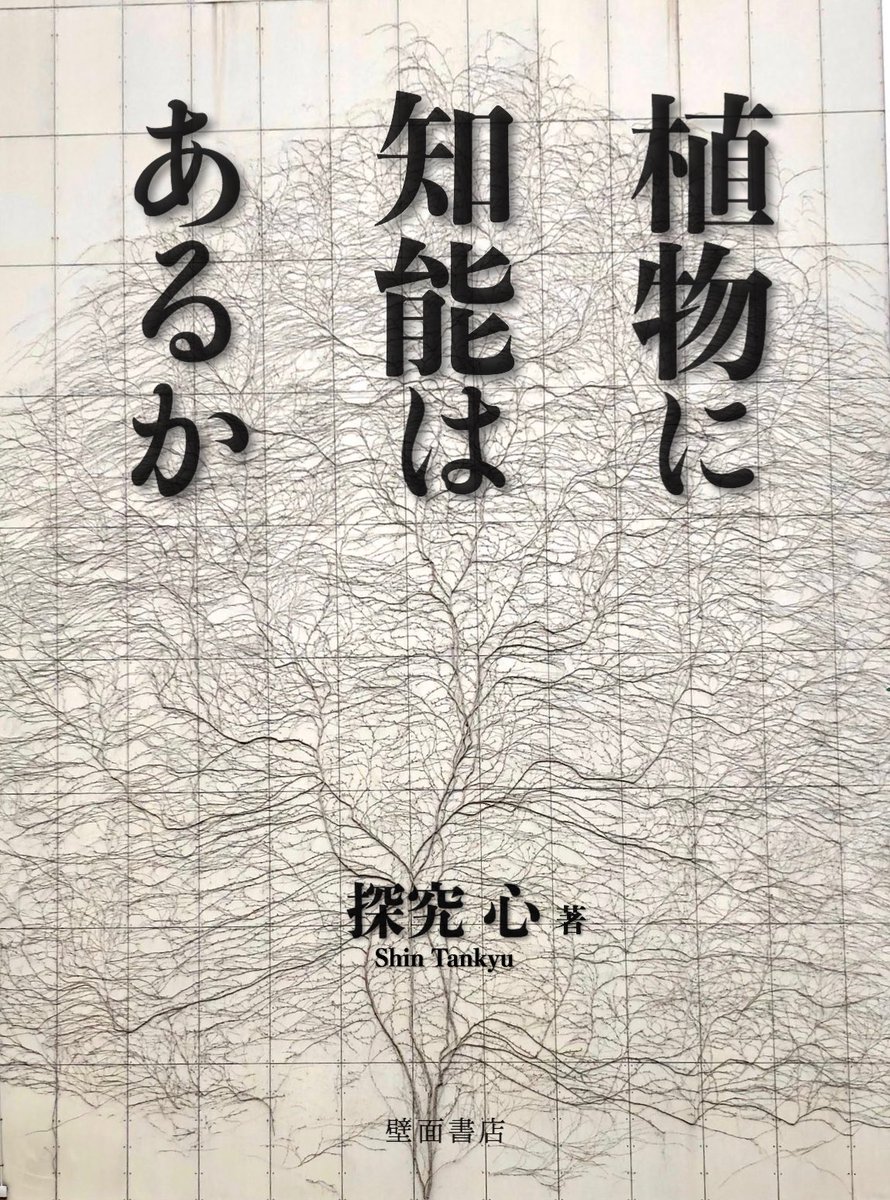 植物に
知能は
あるか
探究 心 著
Shin Tankyu
壁面書店